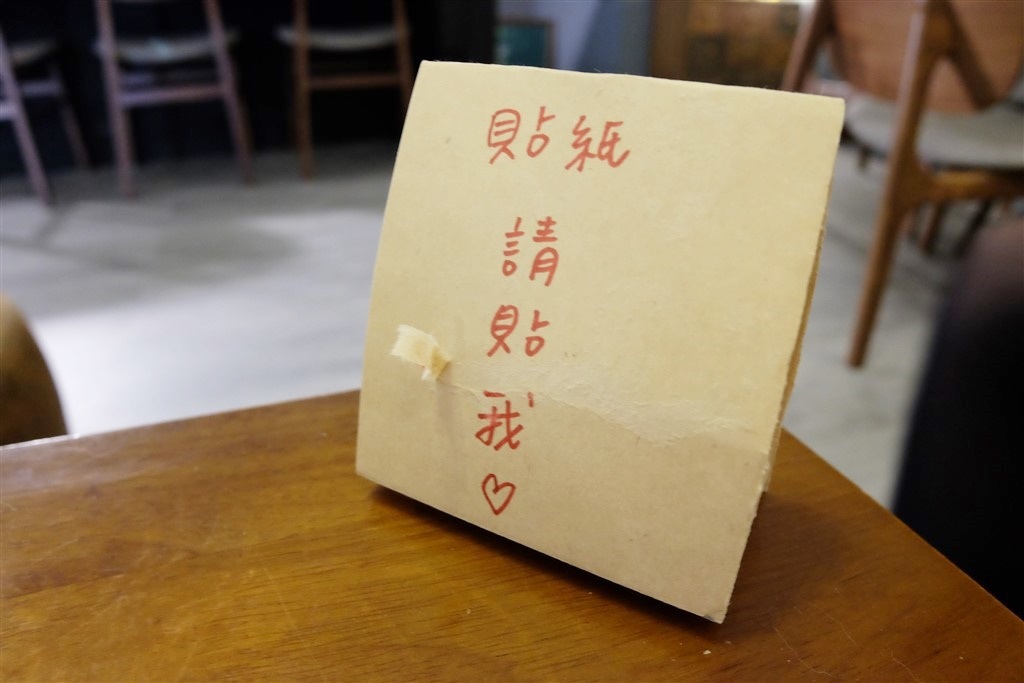 貼紙
請
貼
我
♡